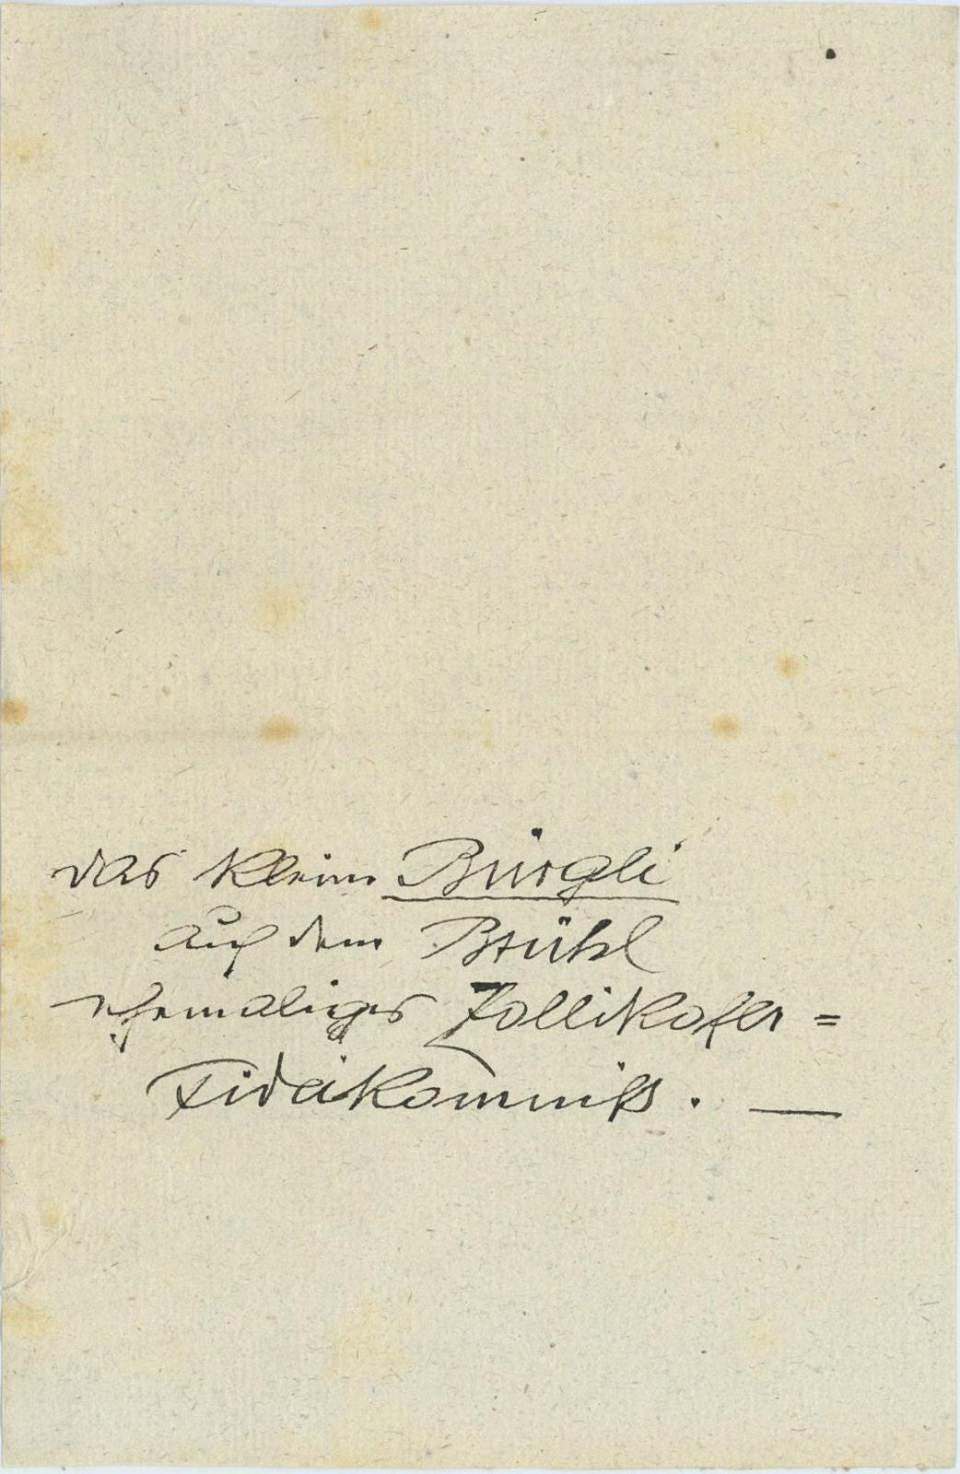 das kleine Bürgli
auf dem Brühl
ehemaliges Zollikofer=
Fideikommiß. —